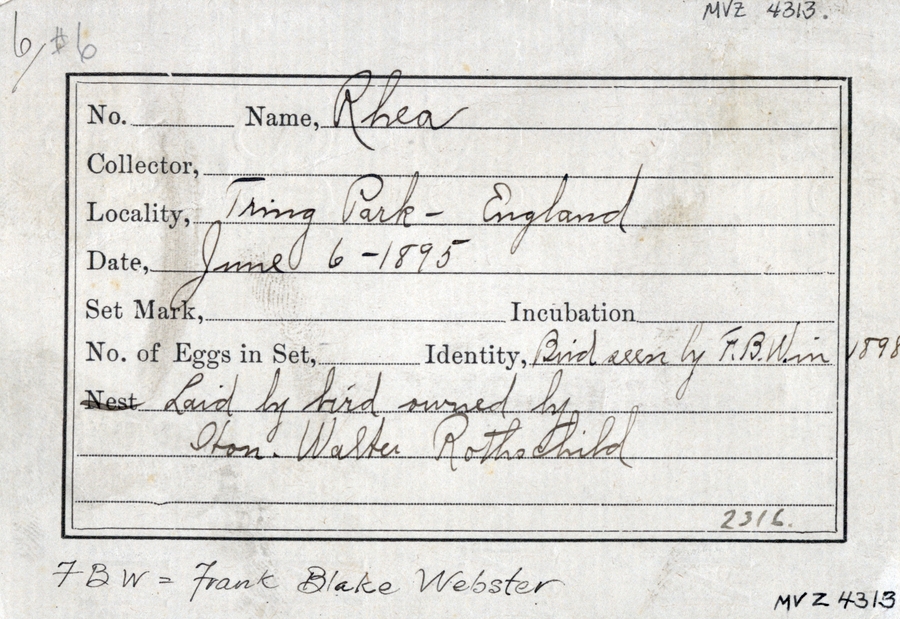 MVZ 4313.
6/$6
No. Name, Rhea
Collector,
Locality, Tring Park - England
Date, June 6 - 1895
Set Mark, Incubation
No. of Eggs in Set, Identity, Bird seen by F.B.W. in 1898
Nest Laid by bird owned by
Hon. Walter Rothschild
2316.
FBW = Frank Blake Webster
MVZ 4313